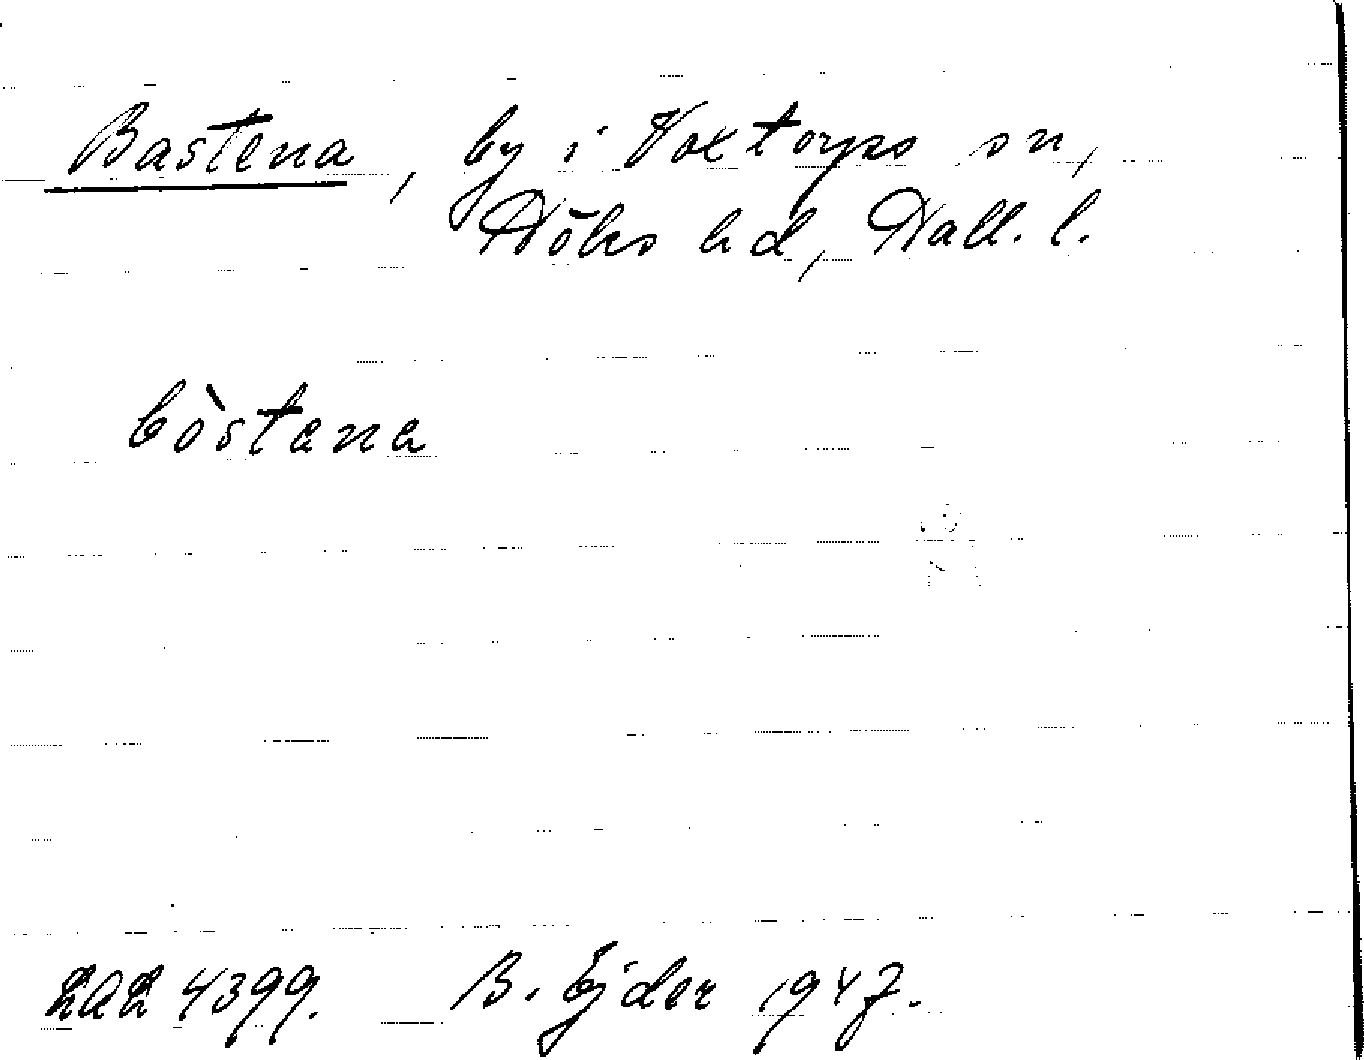 Bastena, by i Voxtorps sn,
Höks hd, Hall. l.
bòstana
LAL 4399. B. Ejder 1947.